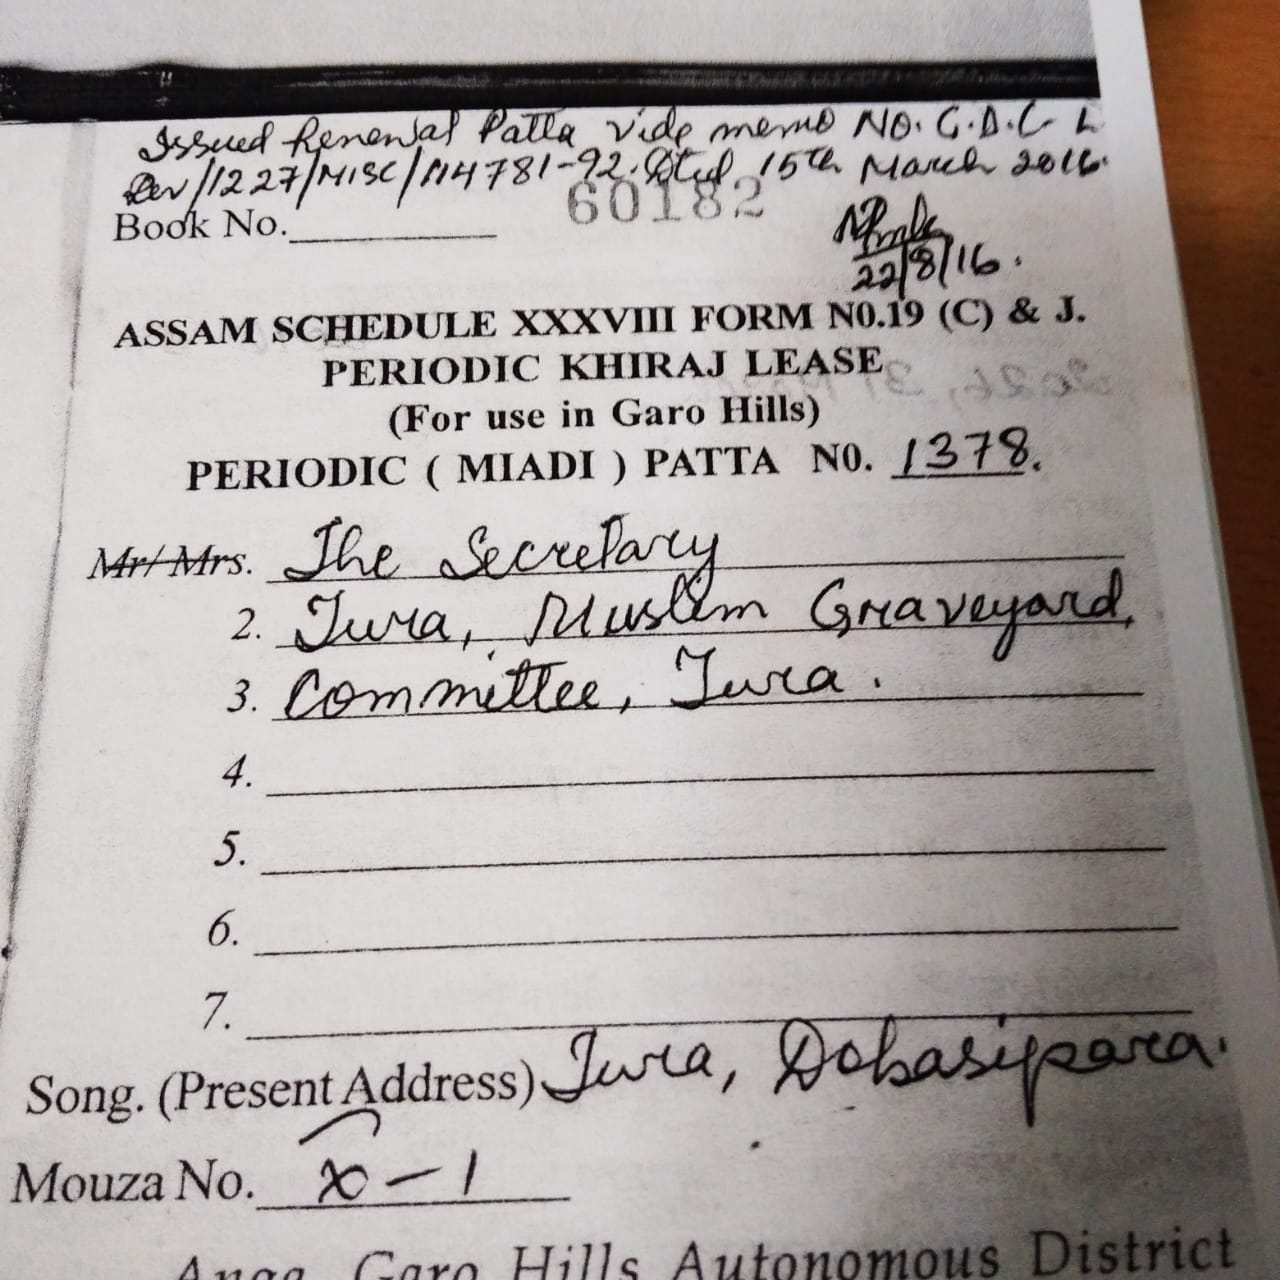 Issued Renewal Patta vide memo NO. G.D.C. L
Rev/1227/MISC/114781-92. Dtd 15th March 2016.
60182
Book No.
22/8/16.
ASSAM SCHEDULE XXXVIII FORM N0.19 (C) & J.
PERIODIC KHIRAJ LEASE
(For use in Garo Hills)
PERIODIC ( MIADI ) PATTA N0. 1378.
Mr/ Mrs. The Secretary
2. Tura, Muslim Graveyard,
3. Committee, Tura.
4.
5.
6.
7.
Song. (Present Address) Tura, Dobasipara.
Mouza No. X-1
Anga, Garo Hills Autonomous District